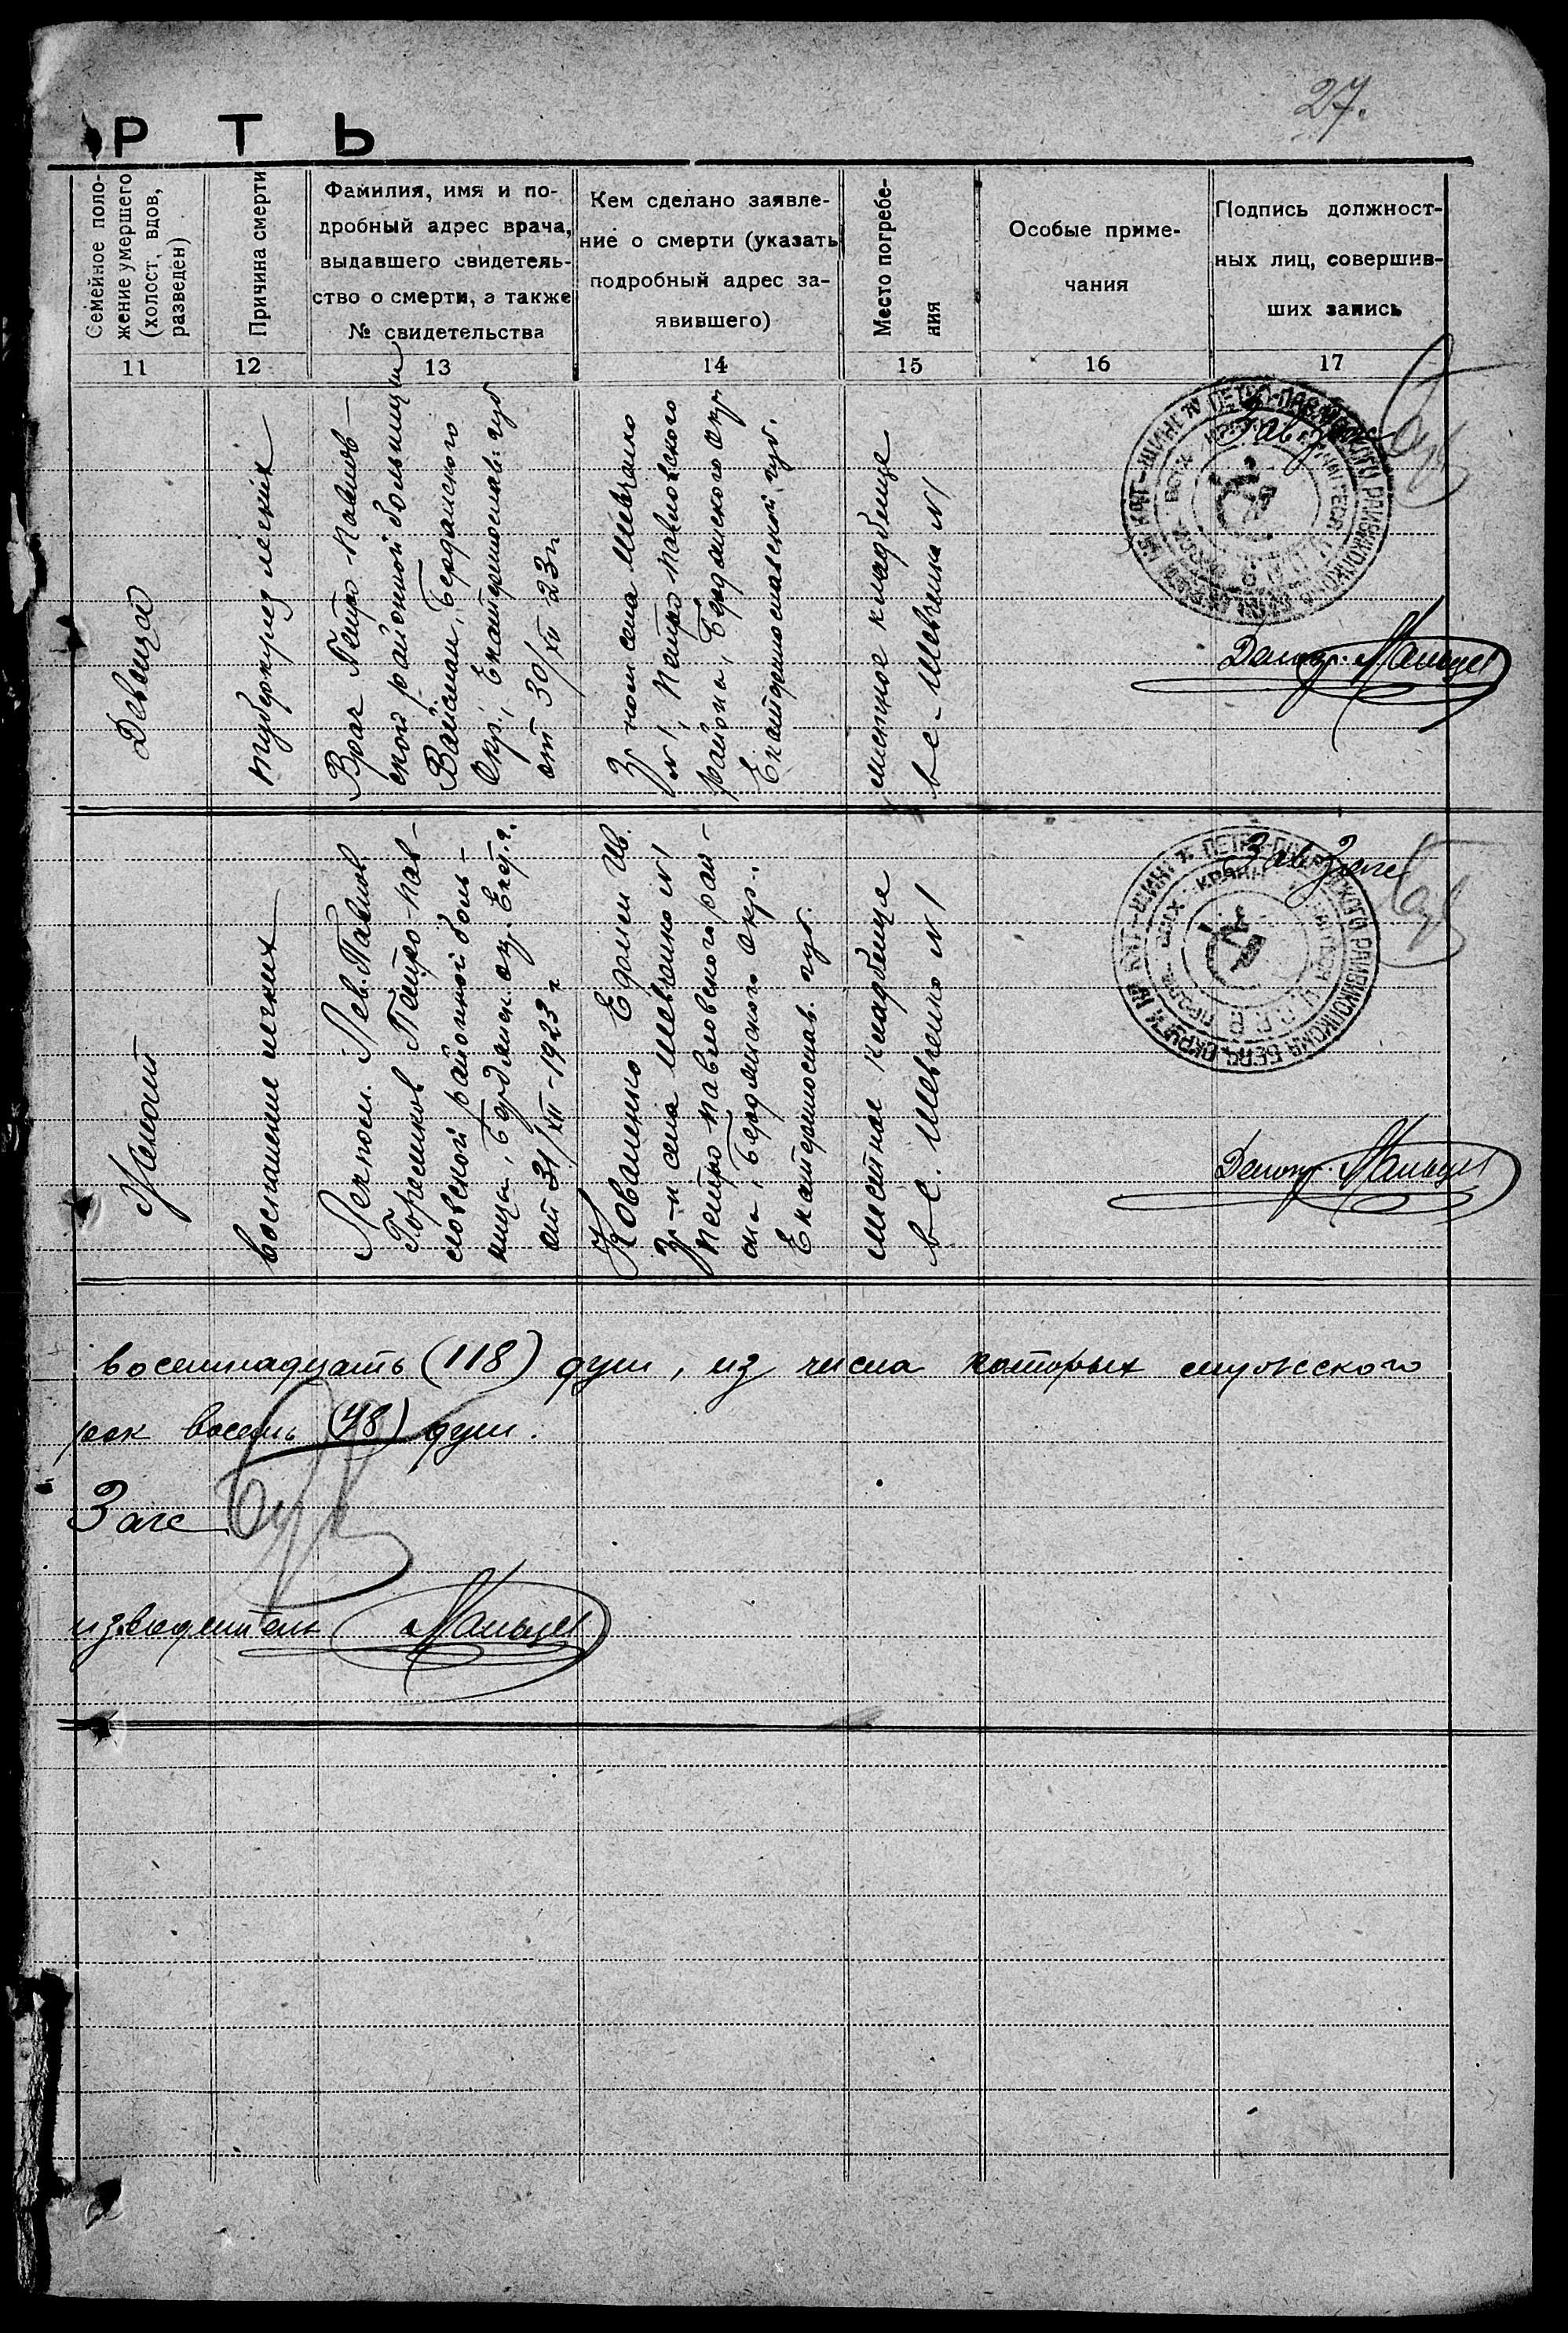 27.
Р Т Ь
Семейное поло-
жение умершего
(холост, вдов,
разведен)
Причина смерти
Фамилия, имя и по-
дробный адрес врача,
выдавшего свидетель-
ство о смерти, а также
№ свидетельства
Кем сделано заявле-
ние о смерти (указать
подробный адрес за-
явившего)
Место погребе-
ния
Особые приме-
чания
Подпись должност-
ных лиц, совершив-
ших запись
11 12 13 14 15 16 17
Девица
туберкулез легких
Врач Петро-Павлов-
ской районной больницы
Вайсман, Бердянского
Окр., Екатеринослав. губ
от 30/XII 23 г.
села Шевченко
№1, Петропавловского
района, Бердянского Окр
Екатеринославской губ.
местное кладбище
в с. Шевченко №1
Зав Загс
Делопр. Мальцев
Женат
воспаление легких
Лекпом. Лев. Павлов
Петро-Пав-
ловской районной боль-
ница, Бердянск. о. Екат. г.
от 31/XII-1923 г
Коваленко Ив.
гр-н села Шевченко №1
Петропавловского рай-
она, Бердянского Окр.,
Екатеринослав. губ.
местное кладбище
в с. Шевченко №1
Зав Загс
Делопр. Мальцев
восемнадцать (118) душ, из числа которых мужского
рок восемь (48) душ.
Загс
изводитель Мальцев